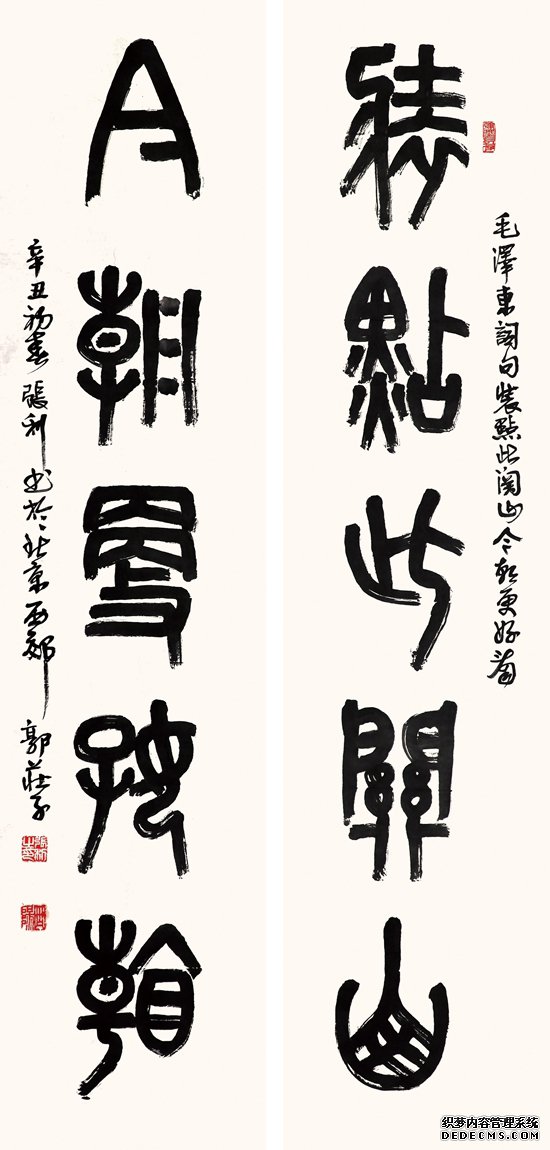 裝點此關山
毛澤東詞句裝點此關山今朝更好看
今朝更好看
辛丑初春張利書於北京西郊郭莊子
织梦内容管理系统
DEDECMS.COM